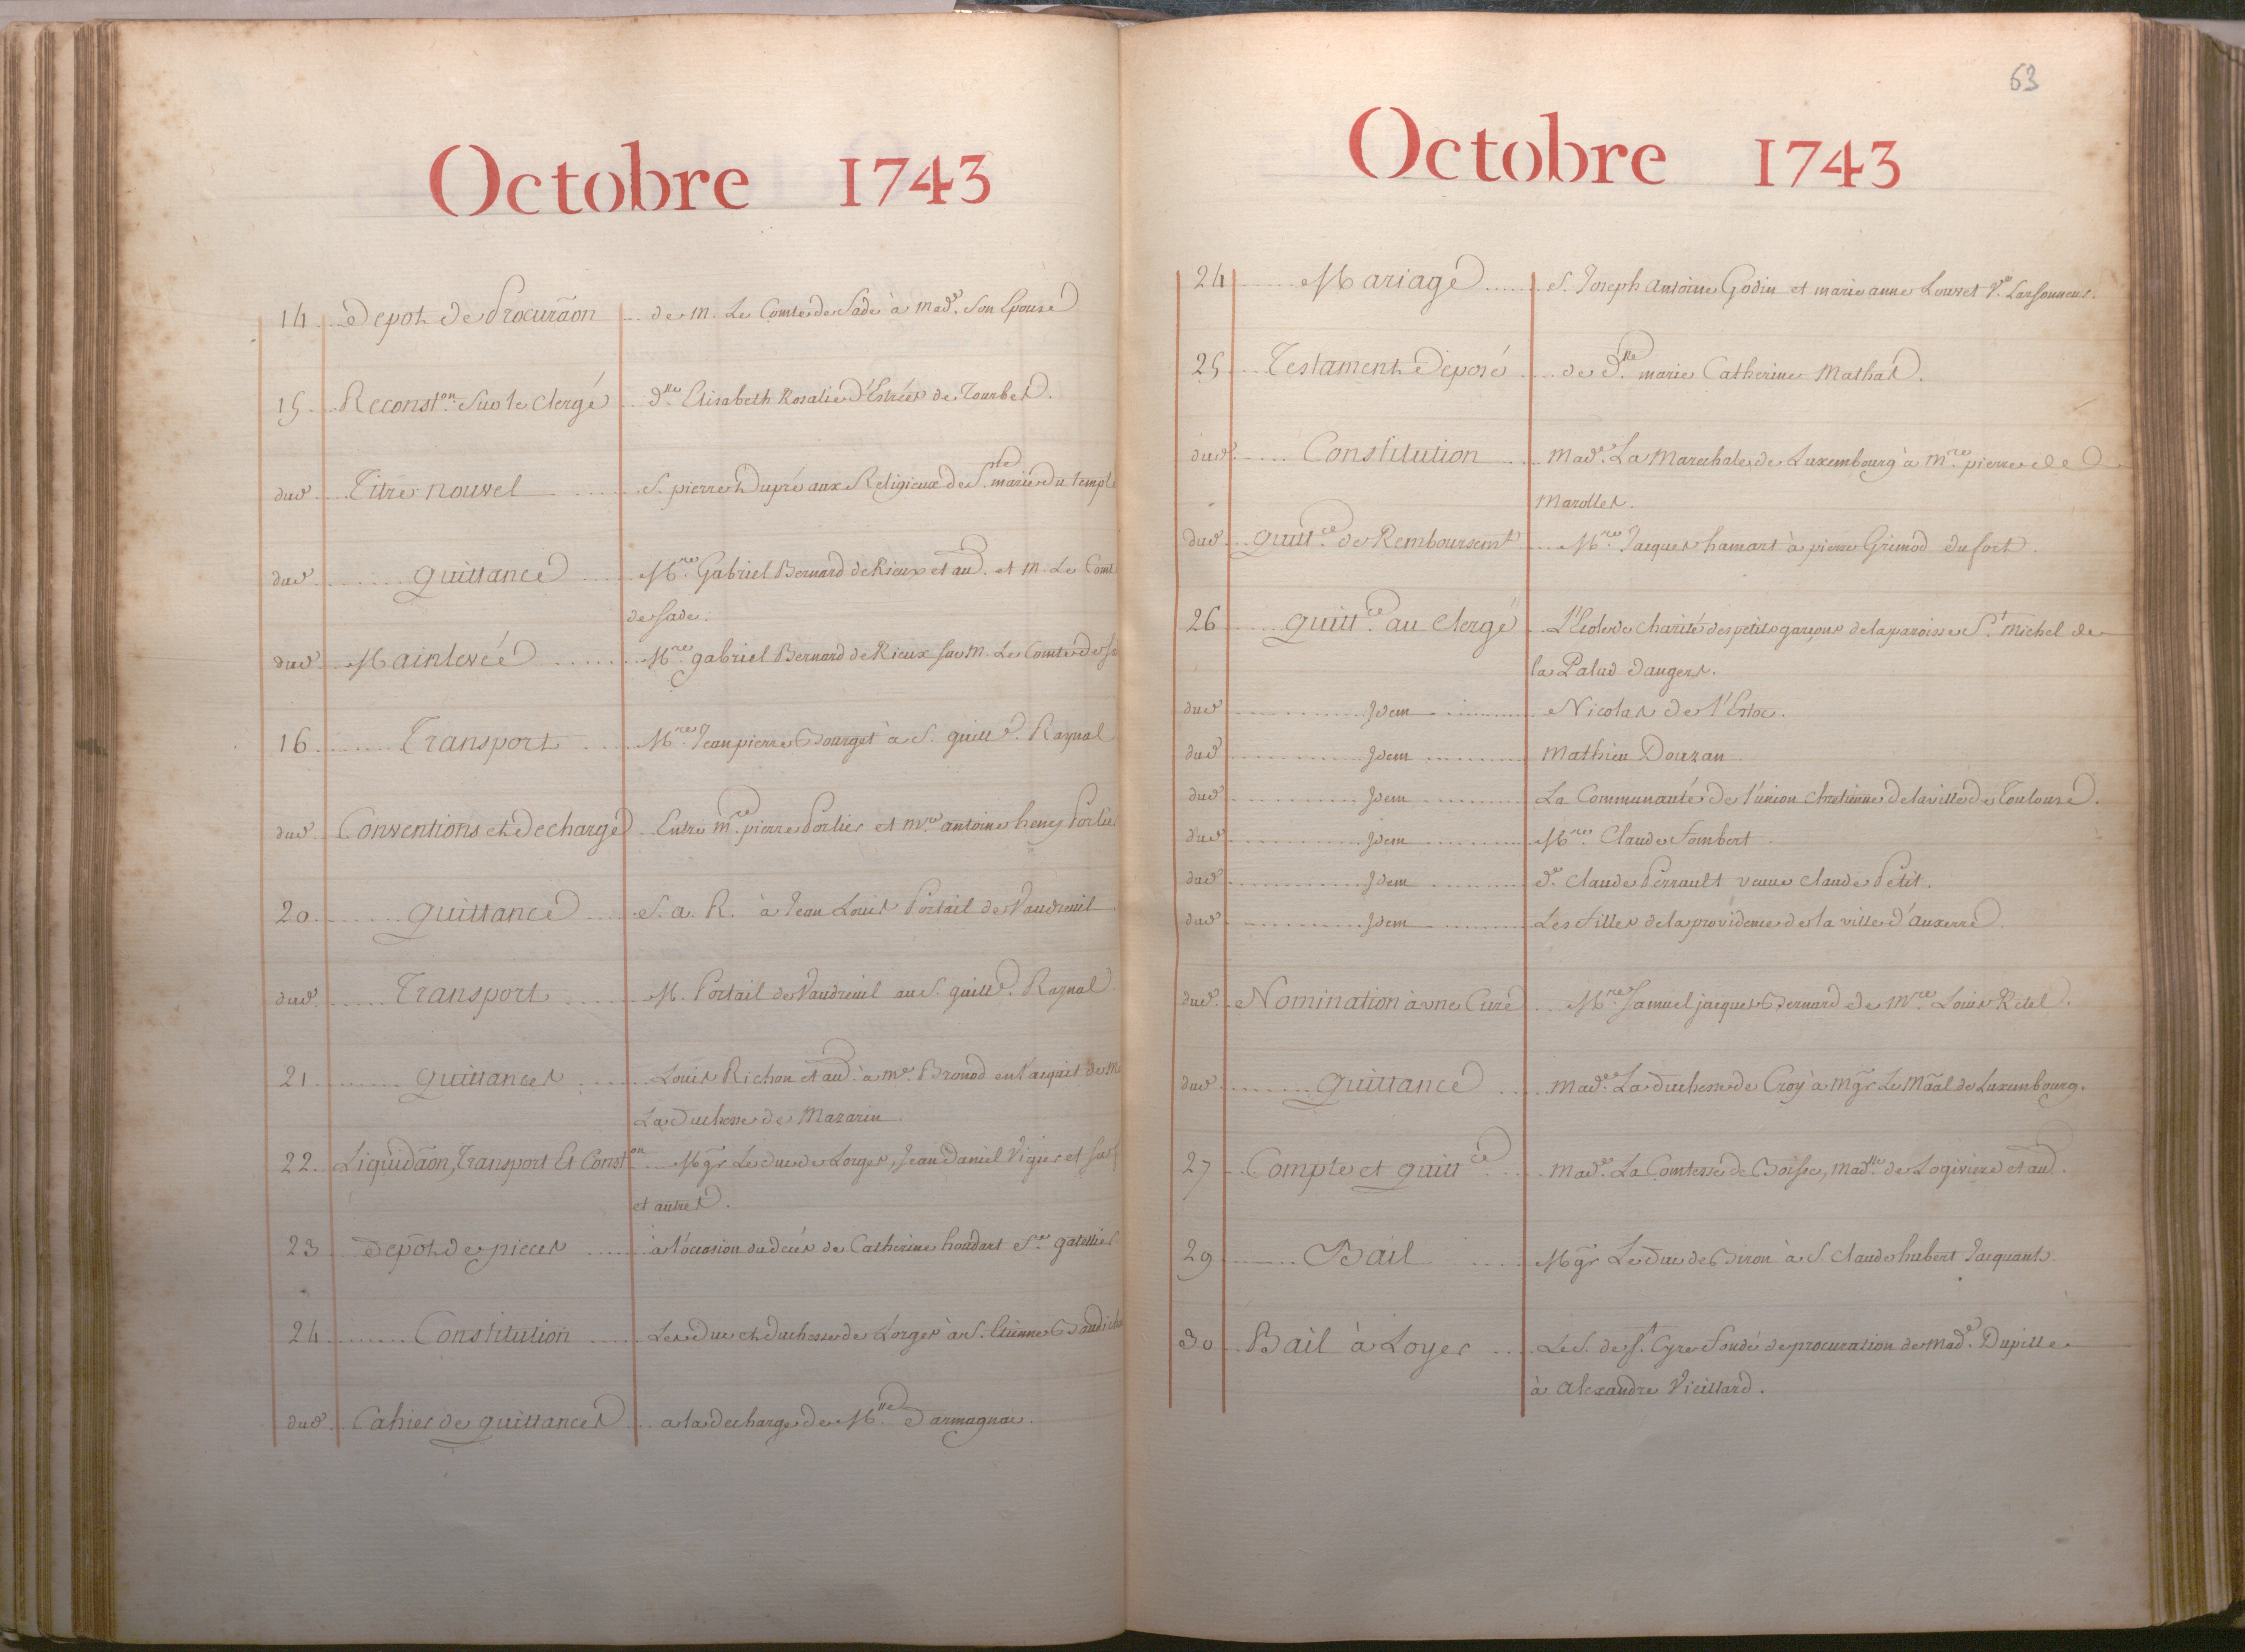 Octobre 1743
14 Depot de Procuraõn de M. Le Comte de Sade à Made. Son Epouse
15 Reconston. Sur le Clergé Dlle Elisabeth Rosalie d'Estrées de Tourbes.
dud. Titre nouvel S. pierre Dupré aux Religieux de Ste. marie du temple
dud. quittance Mre. Gabriel Bernard de Rieux et au. et M. Le Comte
de Sade.
dud. Mainlevée Mre. gabriel Bernard de Rieux sur M. Le Comte de
16 Transport Mre. Jean pierre Bourget à S. guille. Raynal
dud. Conventions et decharge Entre Mre. pierre Porlier et Mre. antoine henry Porlier
20 quittance S. a. R. à Jean Louis Portail de Vaudreuil
dud. Transport M. Portail de Vaudreuil au S. guille. Raynal
21 quittances Louis Richon et au. à Me. Bronod en l'acquit de M
La Duchesse de Mazarin
22 Liquidaõn, Transport Et Conston Mgr Le duc de Lorges, Jean Daniel Vigier et
et autres.
23 depot de pieces à l'occasion du deces de Catherine houdart
24 Constitution Les Duc et duchesse de Lorges à S. Etienne
dud. Cahier de quittances a la decharge de Mlle Darmagnac.
63
Octobre 1743
24 Mariage S. Joseph Antoine Godin et marie anne Louvet Ve.
25 Testament deposé de Dlle. marie Catherine Mathas.
dud. Constitution Made. La Marechale de Luxembourg à Mre. pierre de
Marolles.
dud. quittce. de Remboursemt Mre. Jacques hamart à pierre Grimod dufort.
26 quittce. au Clergé L'Ecole de Charité des petits garçons de la paroisse St. Michel de
la Palud d'angers.
dud. Jdem Nicolas de l'Estoc.
dud. Jdem Mathieu Douzan
dud. Jdem La Communauté de l'union chretienne de la ville de Toulouse.
dud. Jdem Mre. Claude Fombert
dud. Jdem De. Claude Perrault veuve Claude Petit.
dud. Jdem Les filles de la providence de la ville d'Auxerre
dud. Nomination à une Cure Mre. Samuel jacques Bernard de Mre. Louis Retel.
dud. quittance Made. La duchesse de Croÿ à Mgr Le Mãal de Luxembourg.
27 Compte et quittce Made. La Comtesse de Boisse, Madlle. de Logiviere et au.
29 Bail Mgr Le Duc de Biron à S. Claude hubert Jacquant.
30 Bail à Loyer Le S. de St. Cyre fondé de procuration de Made. Dupille
à Alexandre Vieillard.